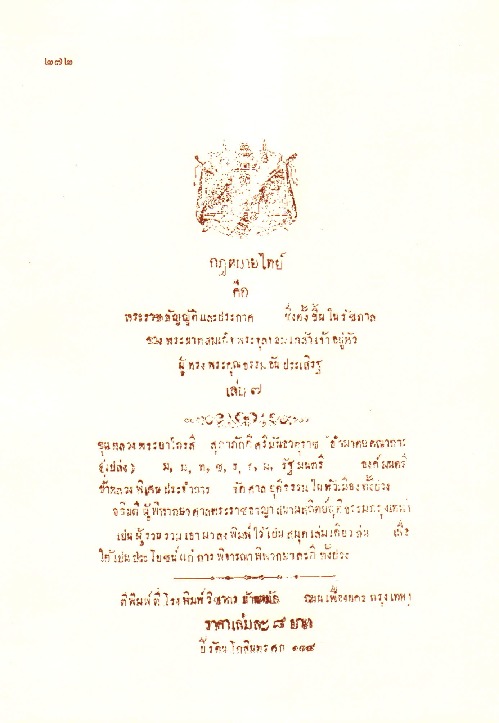 ๒๗๒
กฎหมายไทย
คือ
พระราชบัญญัติและประกาศ ซึ่งตั้งขึ้นในรัชกาล
ของ พระบาทสมเด็จ พระจุลจอมเกล้าเจ้าอยู่หัว
ผู้ ทรง พระคุณธรรม อัน ประเสริฐ
เล่ม ๗
ขุนหลวงพระยาไกรสี สุภาภักดี ศรีมันธาตุราช อำมาตยคณาการ
(เปล่ง) ม, ม, ท, ช, ร, ร, ม, รัฐมนตรี องคมนตรี
ข้าหลวงพิเศษประจำการ จัดศาลยุติธรรมในหัวเมืองทั้งปวง
อธิบดีผู้พิพากษาศาลพระราชอาญา
เป็น ผู้รวบรวม เอามาลงพิมพ์ไว้เป็น สมุดเล่มเดียวกัน เพื่อ
ให้เป็นประโยชน์แก่การพิจารณาพิพากษาคดีทั้งปวง
ตีพิมพ์ที่โรงพิมพ์ ถนนเฟื่องนคร กรุงเทพฯ
ราคาเล่มละ ๘ บาท
ปีรัตนโกสินทรศก